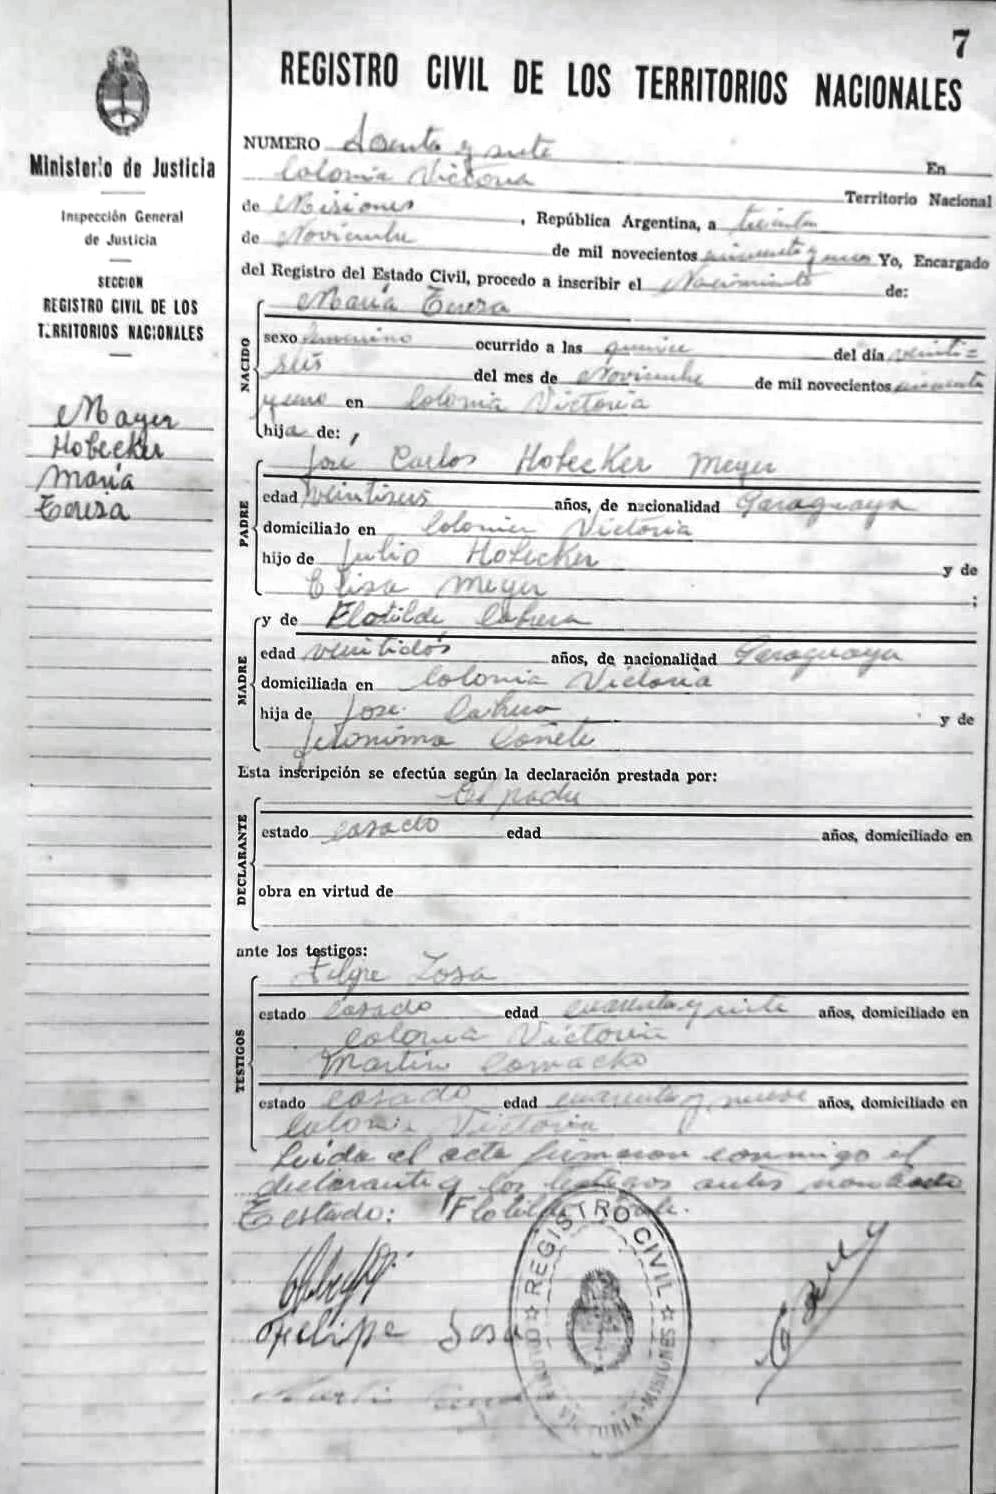 7
REGISTRO CIVIL DE LOS TERRITORIOS NACIONALES
Ministerio de Justicia
Inspección General
de Justicia
SECCION
REGISTRO CIVIL DE LOS
TERRITORIOS NACIONALES
Mayer
Hobecker
María
Teresa
NUMERO y siete En
Colonia Victoria Territorio Nacional
de Misiones, República Argentina, a treinta
de Noviembre de mil novecientos cincuenta y uno Yo, Encargado
del Registro del Estado Civil, procedo a inscribir el Nacimiento de:
NACIDO
María Teresa
sexo femenino ocurrido a las quince del día veinti=
seis del mes de Noviembre de mil novecientos cincuenta
y uno en Colonia Victoria
hija de: ,
PADRE
José Carlos Hobecker Meyer
edad veintiseis años, de nacionalidad Paraguaya
domiciliado en Colonia Victoria
hijo de Julio Hobecker y de
Elisa Meyer ;
MADRE
y de Flotilde Cabrera
edad veintidós años, de nacionalidad Paraguaya
domiciliada en Colonia Victoria
hija de José y de
Jeronima Cañete
Esta inscripción se efectúa según la declaración prestada por:
DECLARANTE
El padre
estado casado edad años, domiciliado en
obra en virtud de
ante los testigos:
TESTIGOS
Felipe Sosa
estado casado edad cuarenta y siete años, domiciliado en
Colonia Victoria
Martin Camacho
estado casado edad cuarenta y nueve años, domiciliado en
Colonia Victoria
Leida el acta firmaron conmigo el
declarante y los testigos antes nombrados
Testado: Flotilde
Felipe Sosa
REGISTRO CIVIL
VICTORIA-MISIONES